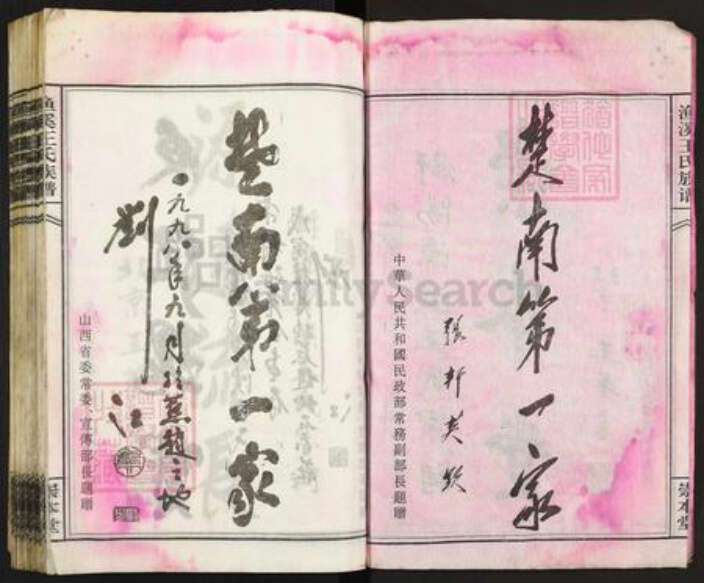 渔溪王氏族谱
楚南第一家
張
中華人民共和國民政部常務副部長題贈
崇本堂
楚南第一家
一九九八年九月於燕趙之地
劉江
山西省委常委、宣傳部長題贈
渔溪王氏族谱
崇本堂
FamilySearch